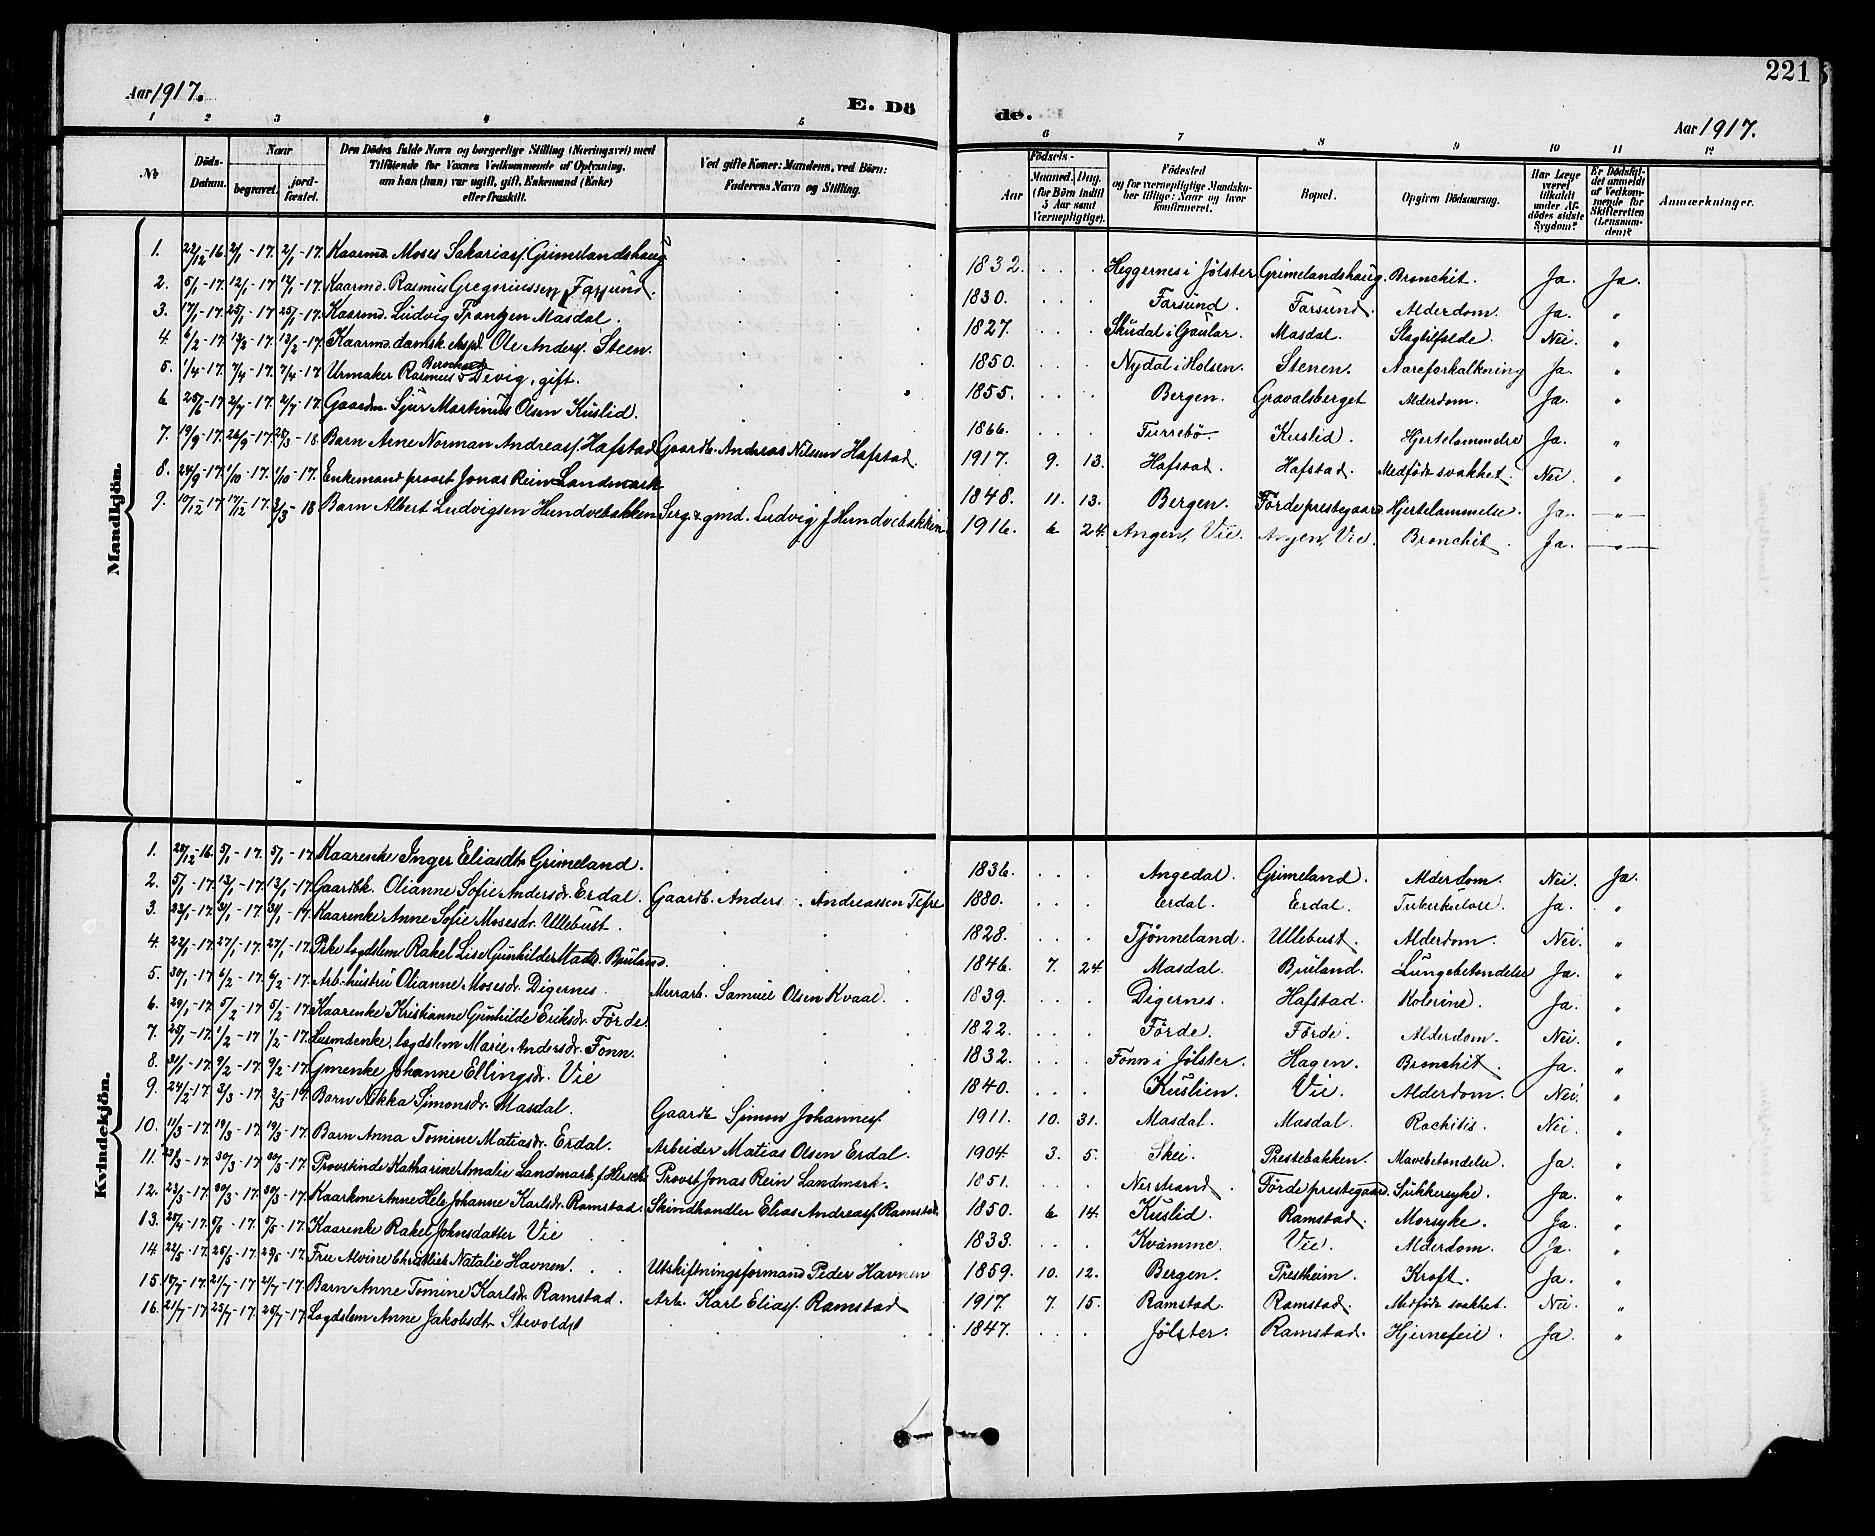 221
Aar 1917.
E. Dö
de.
Aar 1917.
1 2 3 4 5 6 7 8 9 10 11 12
№
Döds-Datum.
Naar
begravet.
jord-fæstet.
Den Dödes fulde Navn og borgerlige Stilling (Næringsvei) med
Tilföiende for Voxnes Vedkommende af Oplysning,
om han (hun) var ugift, gift, Enkemand (Enke)
eller fraskilt.
Ved gifte Koner: Mandens, ved Börn:
Faderens Navn og Stilling.
Födsels-
Aar
Maaned. Dag.
(for Börn indtil
5 Aar samt
Værnepligtige).
Födested
og for værnepligtige Mandska-
ber tillige: Naar og hvor
konfirmeret.
Bopæl.
Opgiven Dödsaarsag.
Har Læge
været
tilkaldt
under Af-
dödes sidste
Sygdom?
Er Dödsfal-
det anmeldt
af Vedkom-
mende for
Skifteretten
(Lensman-
den)?
Anmærkninger.
Mandkjön.
1. 22/12-16. 2/1-17. 2/1-17. Kaarmd. Moses Sakariasf. Grimelandshaug 1832. Heggernes i Jølster Grimelandshaug. Bronchit. Ja. Ja.
2. 5/1-17. 12/1-17. 12/1-17. Kaarmd. Rasmus Gregoriussen Farsund. 1830. Farsund. Farsund. Alderdom. Ja. "
3. 17/1-17. 25/1-17. 25/1-17. Kaarmd. Ludvig Frantzen Masdal. 1827. Skudal i Gaular. Masdal. Slagtilfelde. Nei. "
4. 6/2-17. 13/2-17. 13/2-17. Kaarmd. damsk. eksp. Ole Andersf. Steen. 1850. Nydal i Holsen. Stenen. Aareforkalkning Ja. "
5. 1/4-17. 7/4-17. 7/4-17. Urmaker Rasmus Bernhard Devig, gift. 1855. Bergen. Gravalsberget Alderdom. Ja. "
6 25/6-17. 2/7-17. 2/7-17. Gaardm. Sjur Martinus Olsen Kuslid. 1866. Turrebö. Kuslid. Hjertelammelse Ja. "
7. 19/9-17. 26/9-17. 28/3-18. Barn Arne Norman Andreasf. Hafstad Gaardb. Andreas Nilssen Hafstad. 1917. 9. 13. Hafstad. Hafstad. Medfödt svakhet. Nei. "
8. 24/9-17. 1/10-17. 1/10-17. Enkemand provst Jonas Rein Landmark 1848. 11. 13. Bergen. Förde prestegaard Hjertelammelse. Ja. "
9. 10/12-17 17/12-17. 3/3-18 Barn Albert Ludvigsen Hundvebakken Serg. & gmd. Ludvig J Hundvebakken 1916. 6 24. Angen, Vie. Angen, Vie. Bronchit. Ja. "
Kvindekjön.
1. 28/12-16. 5/1-17. 5/1-17. Kaarenke Inger Eliasdtr. Grimeland. 1836. Angedal. Grimeland. Alderdom. Nei. Ja.
2. 5/1-17. 13/1-17. 13/1-17. Gaardbk. Olianne Sofie Andersdr. Erdal. Gaardb. Anders Andreassen Tefre 1880. Erdal. Erdal. Tuberkulose. Ja. "
3. 23/1-17. 31/1-17. 31/1-17. Kaarenke Anne Sofie Mosesdr. Ullebust. 1828. Tjönneland. Ullebust. Alderdom. Nei. "
4. 22/1-17. 27/1-17. 27/1-17. Pike logdslem Rakel Lise Gunhilde Madsdr. Bruland. 1846. 7. 24 Masdal. Bruland. Lungebetendelse Ja. "
5. 30/1-17. 6/2-17. 6/2-17. Arb.hustru Olianne Mosesdr. Digernes. Murarb. Samuel Olsen Kvaal. 1839. Digernes. Hafstad. Kolerine. Ja. "
6. 29/1-17. 5/2-17. 5/2-17. Kaarenke Kristianne Gunhilde Eriksdr. Förde. 1822. Förde. Förde. Alderdom. Nei. "
7. 25/1-17. 1/2-17 1/2-17. Husmdenke, logdslem Marie Andersdr. Fonn. 1832. Fonn i Jölster. Hagen. Bronchit. Ja. "
8. 31/1-17. 9/2-17. 9/2-17. Gmenke Johanne Ellingsdr. Vie 1840. Kuslien. Vie. Alderdom. Nei. "
9. 24/2-17. 3/3-17. 3/3-17. Barn Nikka Simonsdr. Masdal. Gaardb Simon Johannesf. 1911. 10. 31. Masdal. Masdal. Rachitis. Nei. "
10. 11/3-17. 19/3-17. 19/3-17. Barn Anna Tomine Matiasdr. Erdal. Arbeider Matias Olsen Erdal. 1904. 3. 5. Skei. Prestebakken. Mavebetendelse. Ja. "
11. 21/3-17. 30/3-17. 30/3-17. Provstinde Katharine Amalie Landmark, f. Hersch. Provst Jonas Rein Landmark. 1851. Nerstrand. Förde prestegaard. Sukkersyke. Ja. "
12. 23/3-17. 30/3-17. 30/3-17. Kaarkme Anne Hele Johanne Karlsdr. Ramstad. Skindhandler Elias Andreasf. Ramstad. 1850. 6 14. Kuslid. Ramstad. Morsyke. Ja. "
13. 28/4-17. 5/5-17. 5/5-17. Kaarenke Rakel Johnsdatter Vie 1833. Kvamme. Vie. Alderdom. Ja. "
14. 22/5-17. 26/5-17. 29/5-17. Frue Alvine Christine Natalie Havnen. Utskiftningsformand Peder Havnen 1859. 10. 12. Bergen. Prestheim. Kroft. Ja. "
15. 17/7-17. 21/7-17. 21/7-17. Barn Anne Tomine Karlsdr. Ramstad. Arb. Karl Eliasf. Ramstad 1917. 7. 15. Ramstad. Ramstad. Medfödt svakhet. Nei. "
16. 21/7-17. 25/7-17. 26/7-17. Logdslem Anne Jakobsdtr. Stevoldel 1847. Jölster. Ramstad. Hjernefeil. Ja. "